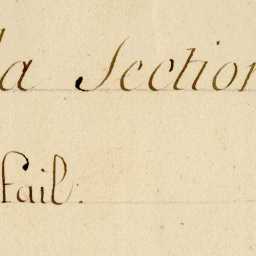 la Section
fail.